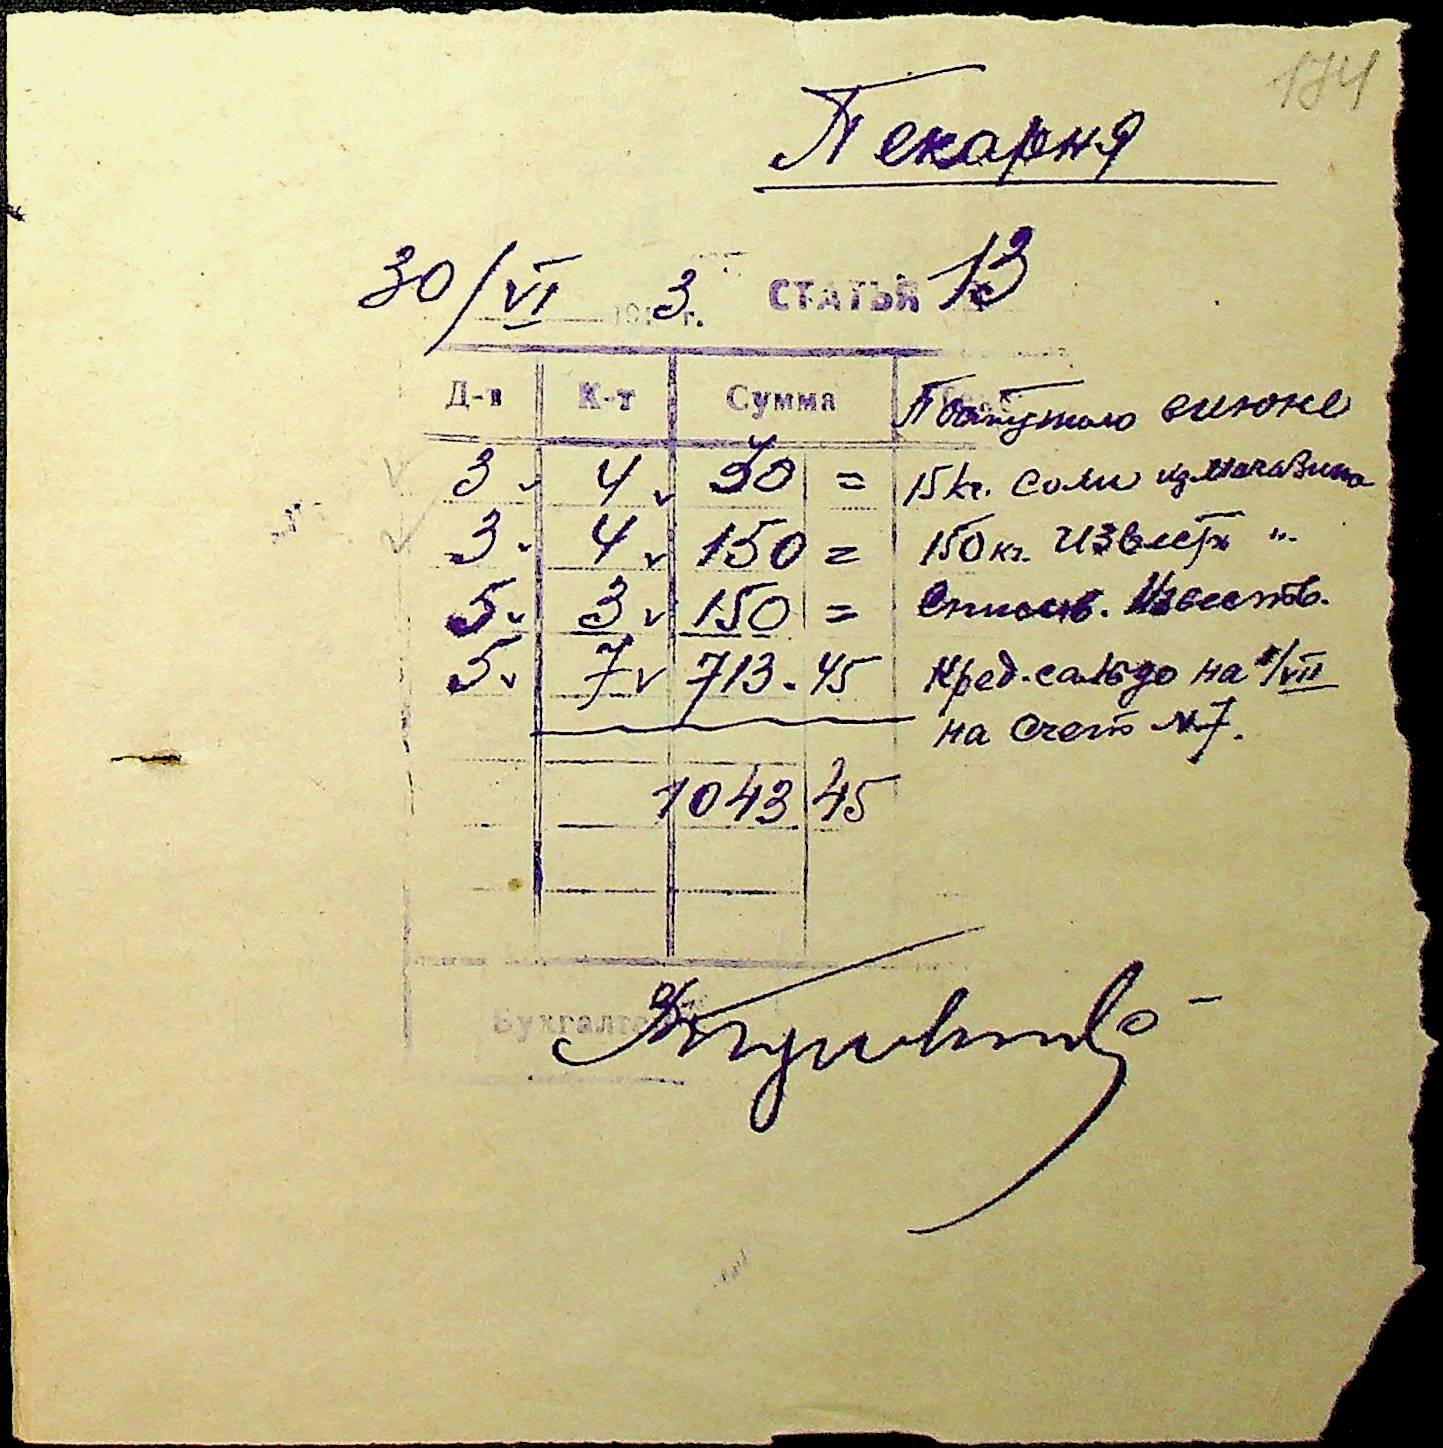 174
Пекарня
30/VI 193 г. СТАТЬЯ 13
Д-т К-т Сумма
Поступило в июне
3 4 30 = 15 кг. соли из магазина
3 4 150 = 150 кг. извести "
5 3 150 = Списыв. Известь.
5 7 713.45 Кред. сальдо на 1/VII
на счет № 7.
1043 45
Бухгалтер